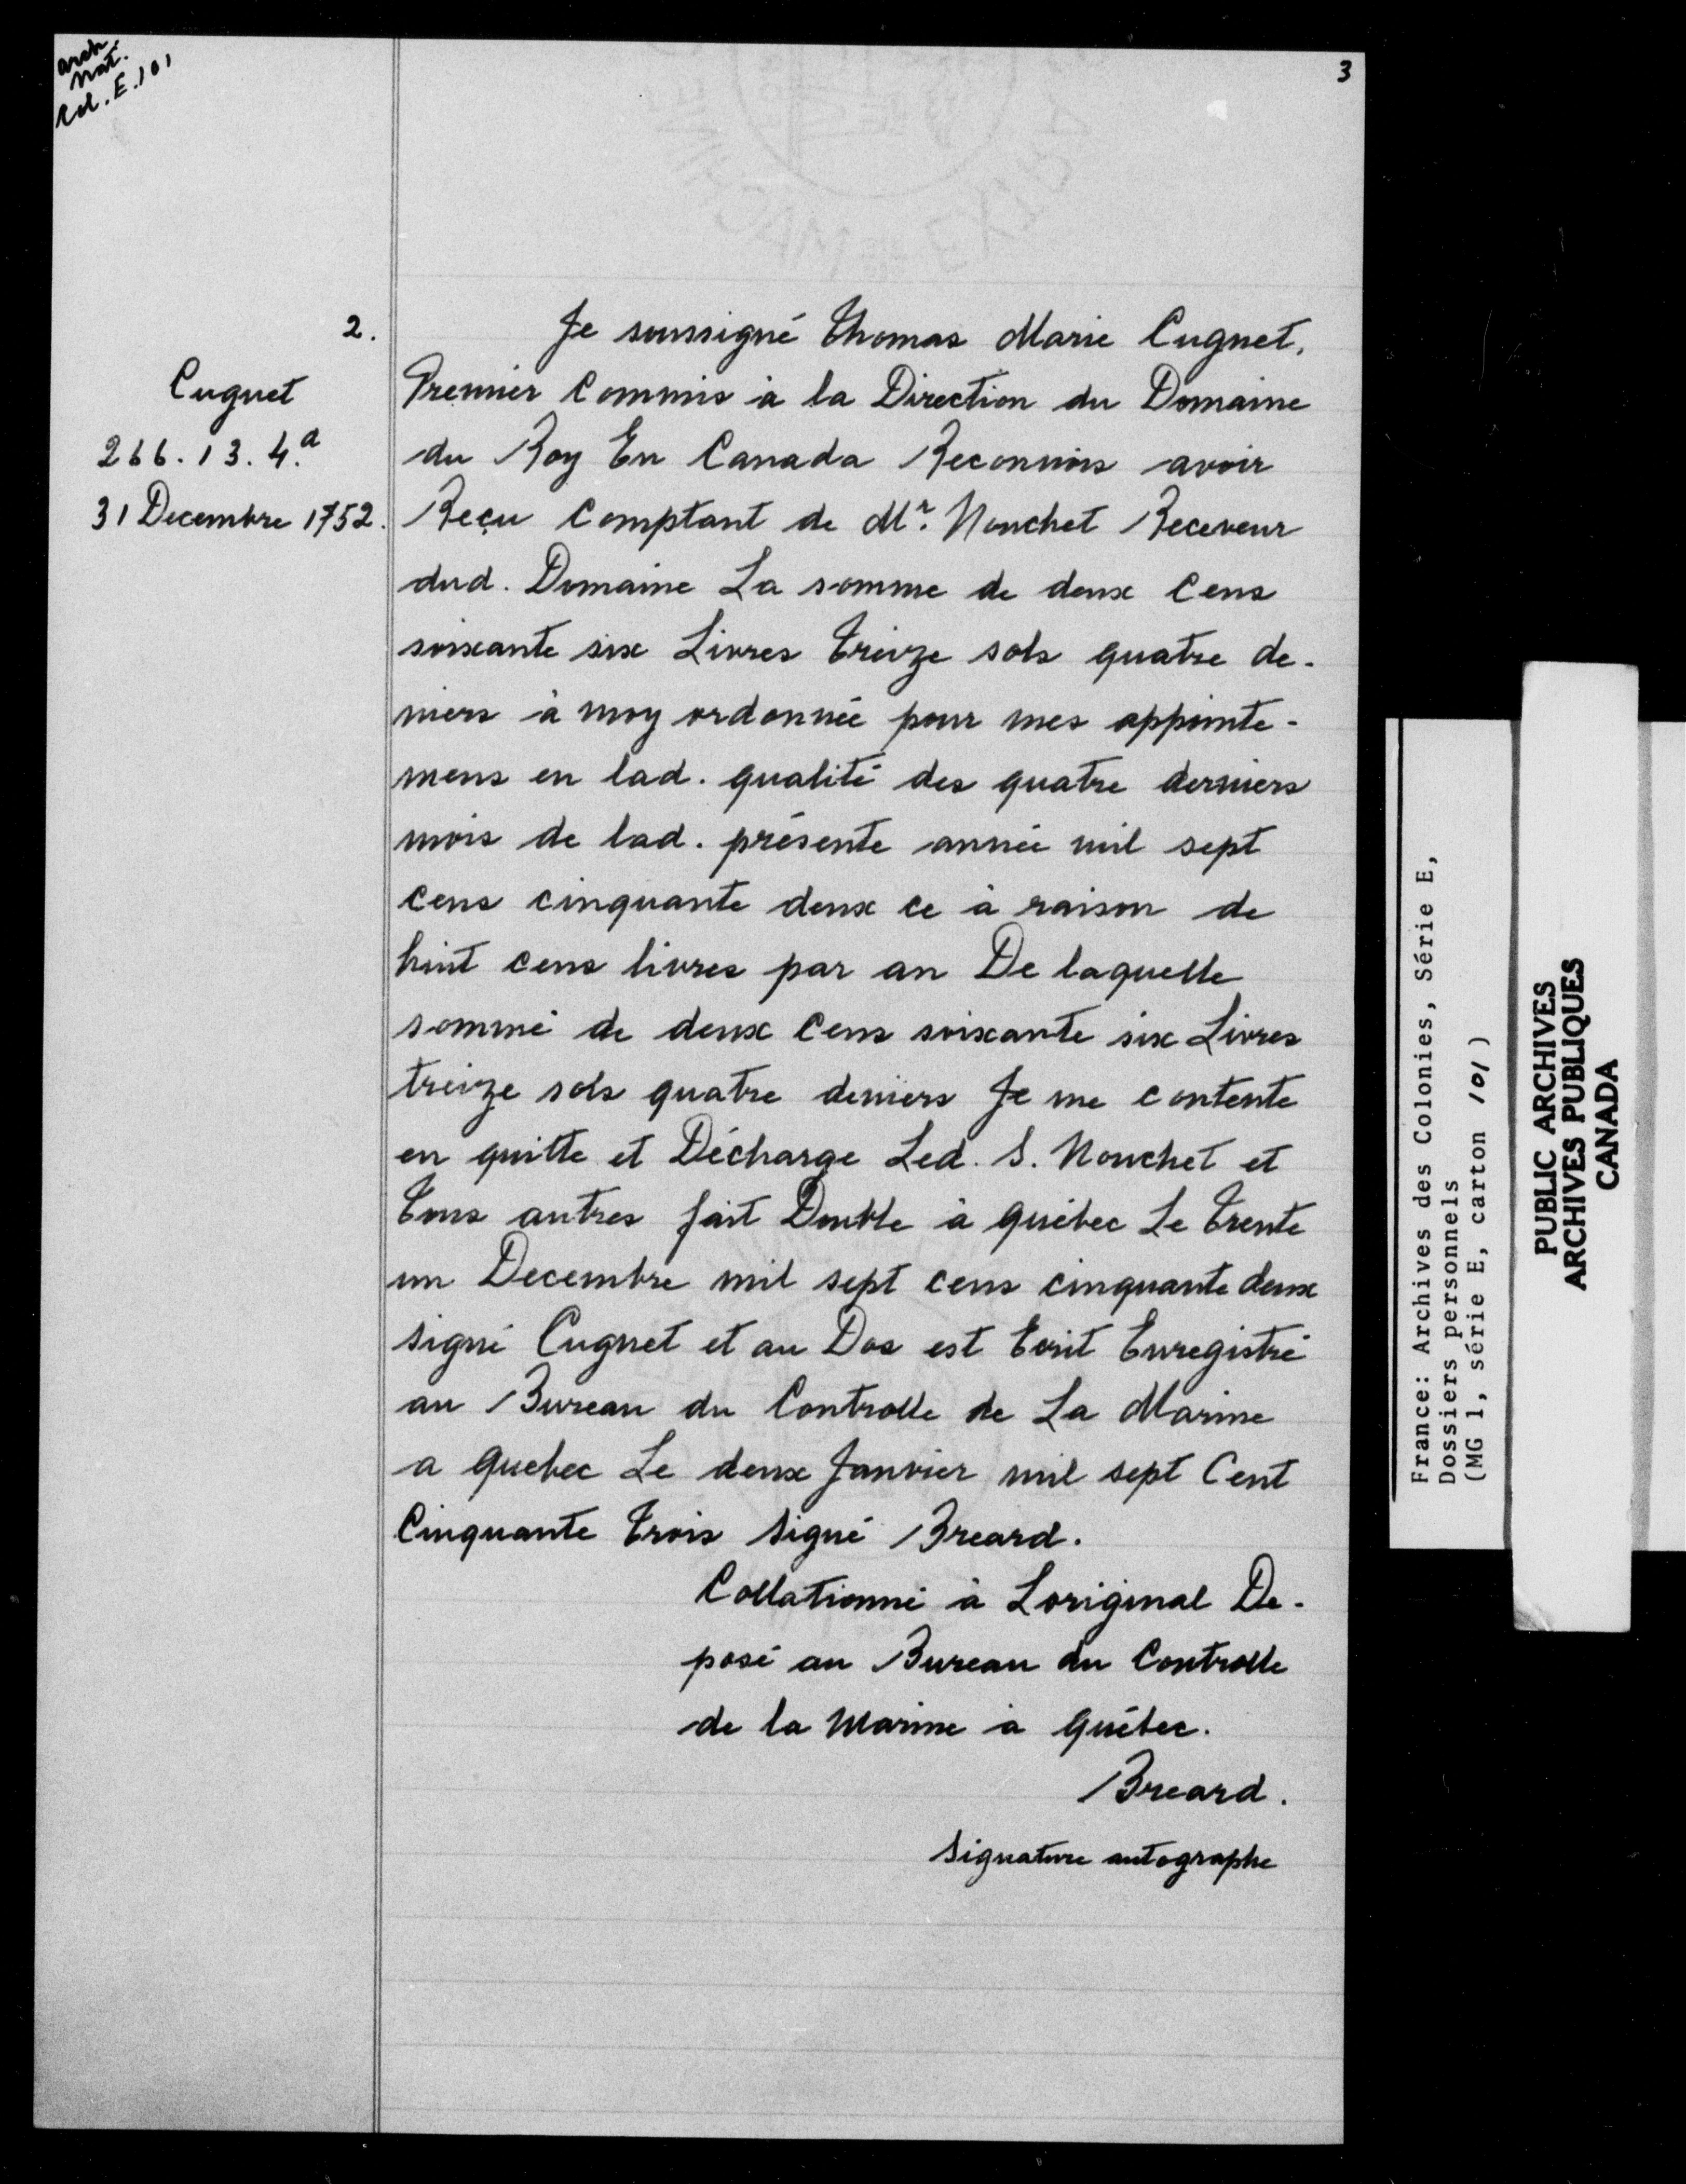 arch.
nat.
Col. E. 101
3
2.
Cugnet
266. 13. 4.d
31 Decembre 1752.
Je soussigné Thomas Marie Cugnet,
Premier Commis à la Direction du Domaine
du Roy En Canada Reconnois avoir
Reçu Comptant de Mr. Nouchet Receveur
dud. Domaine La somme de deux Cens
soixante six Livres treize sols quatre de-
niers à moy ordonnée pour mes appointe-
mens en lad. qualité des quatre derniers
mois de lad. présente année mil sept
cens cinquante deux ce à raison de
huit cens livres par an De laquelle
somme de deux Cens soixante six Livres
treize sols quatre deniers Je me contente
en quitte et Décharge Led. S. Nouchet et
tous autres fait Double à québec Le trente
un Decembre mil sept cens cinquante deux
signé Cugnet et au Dos est Ecrit Enregistré
au Bureau du Controlle de La Marine
a quebec Le deux Janvier mil sept Cent
Cinquante trois signé Breard.
Collationné à Loriginal De-
posé au Bureau du Controlle
de la Marine à québec.
Breard.
signature autographe
France: Archives des Colonies, Série E,
Dossiers personnels
(MG 1, série E, carton 101)
PUBLIC ARCHIVES
ARCHIVES PUBLIQUES
CANADA